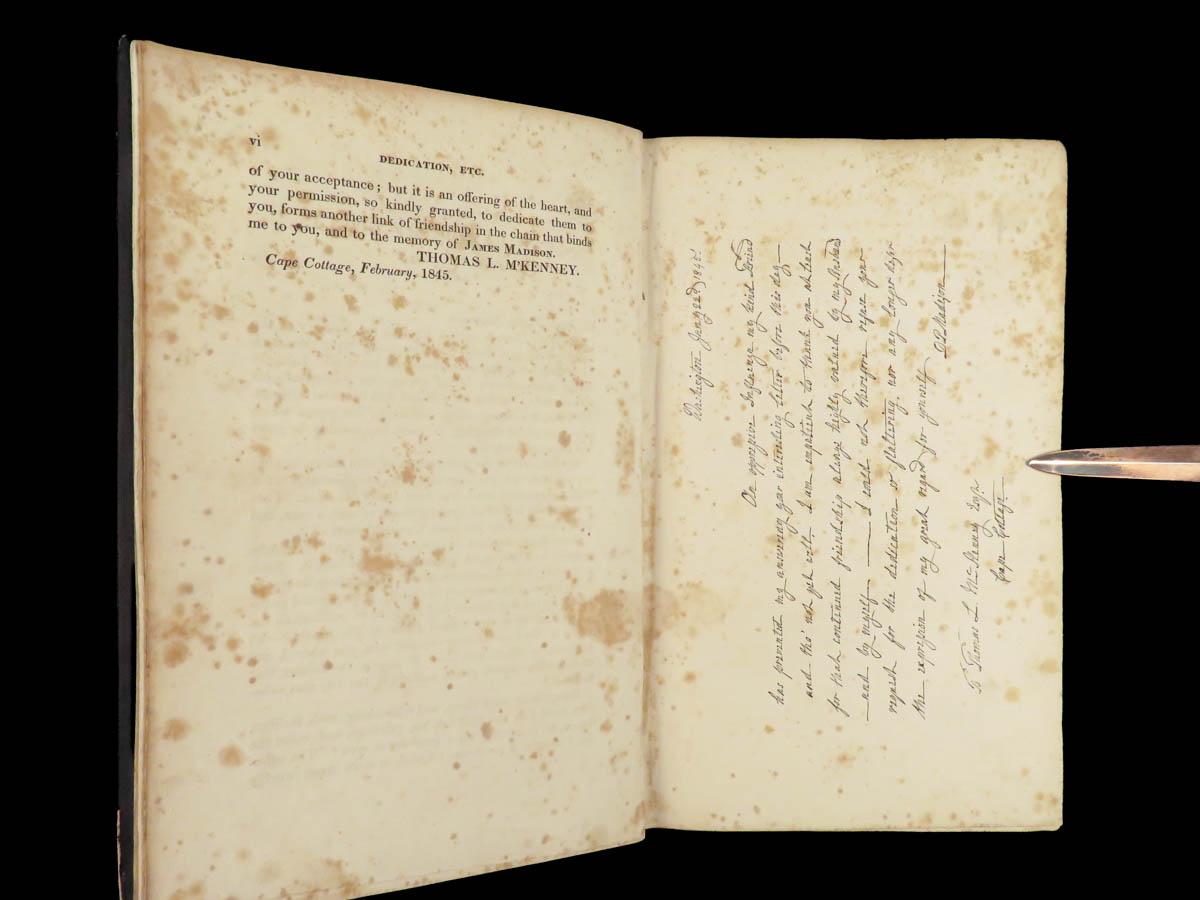 vi
DEDICATION, ETC.
of your acceptance; but it is an offering of the heart, and
your permission, so kindly granted, to dedicate them to
you, forms another link of friendship in the chain that binds
me to you, and to the memory of JAMES MADISON.
THOMAS L. M'KENNEY.
Cape Cottage, February, 1845.
Washington Jany 22d 1845.
An oppressive Influenza my kind Friend
has prevented my answering your interesting letter before this day—
and tho' not yet well. I am impatient to thank you at least
for that continued friendship always highly valued by my Husband
—and by myself — I could not therefore your
for the dedication so flattering, nor any longer defer
the expression of my great regard for yourself
D P Madison
To Thomas L McKenney Esqr.
Cape Cottage